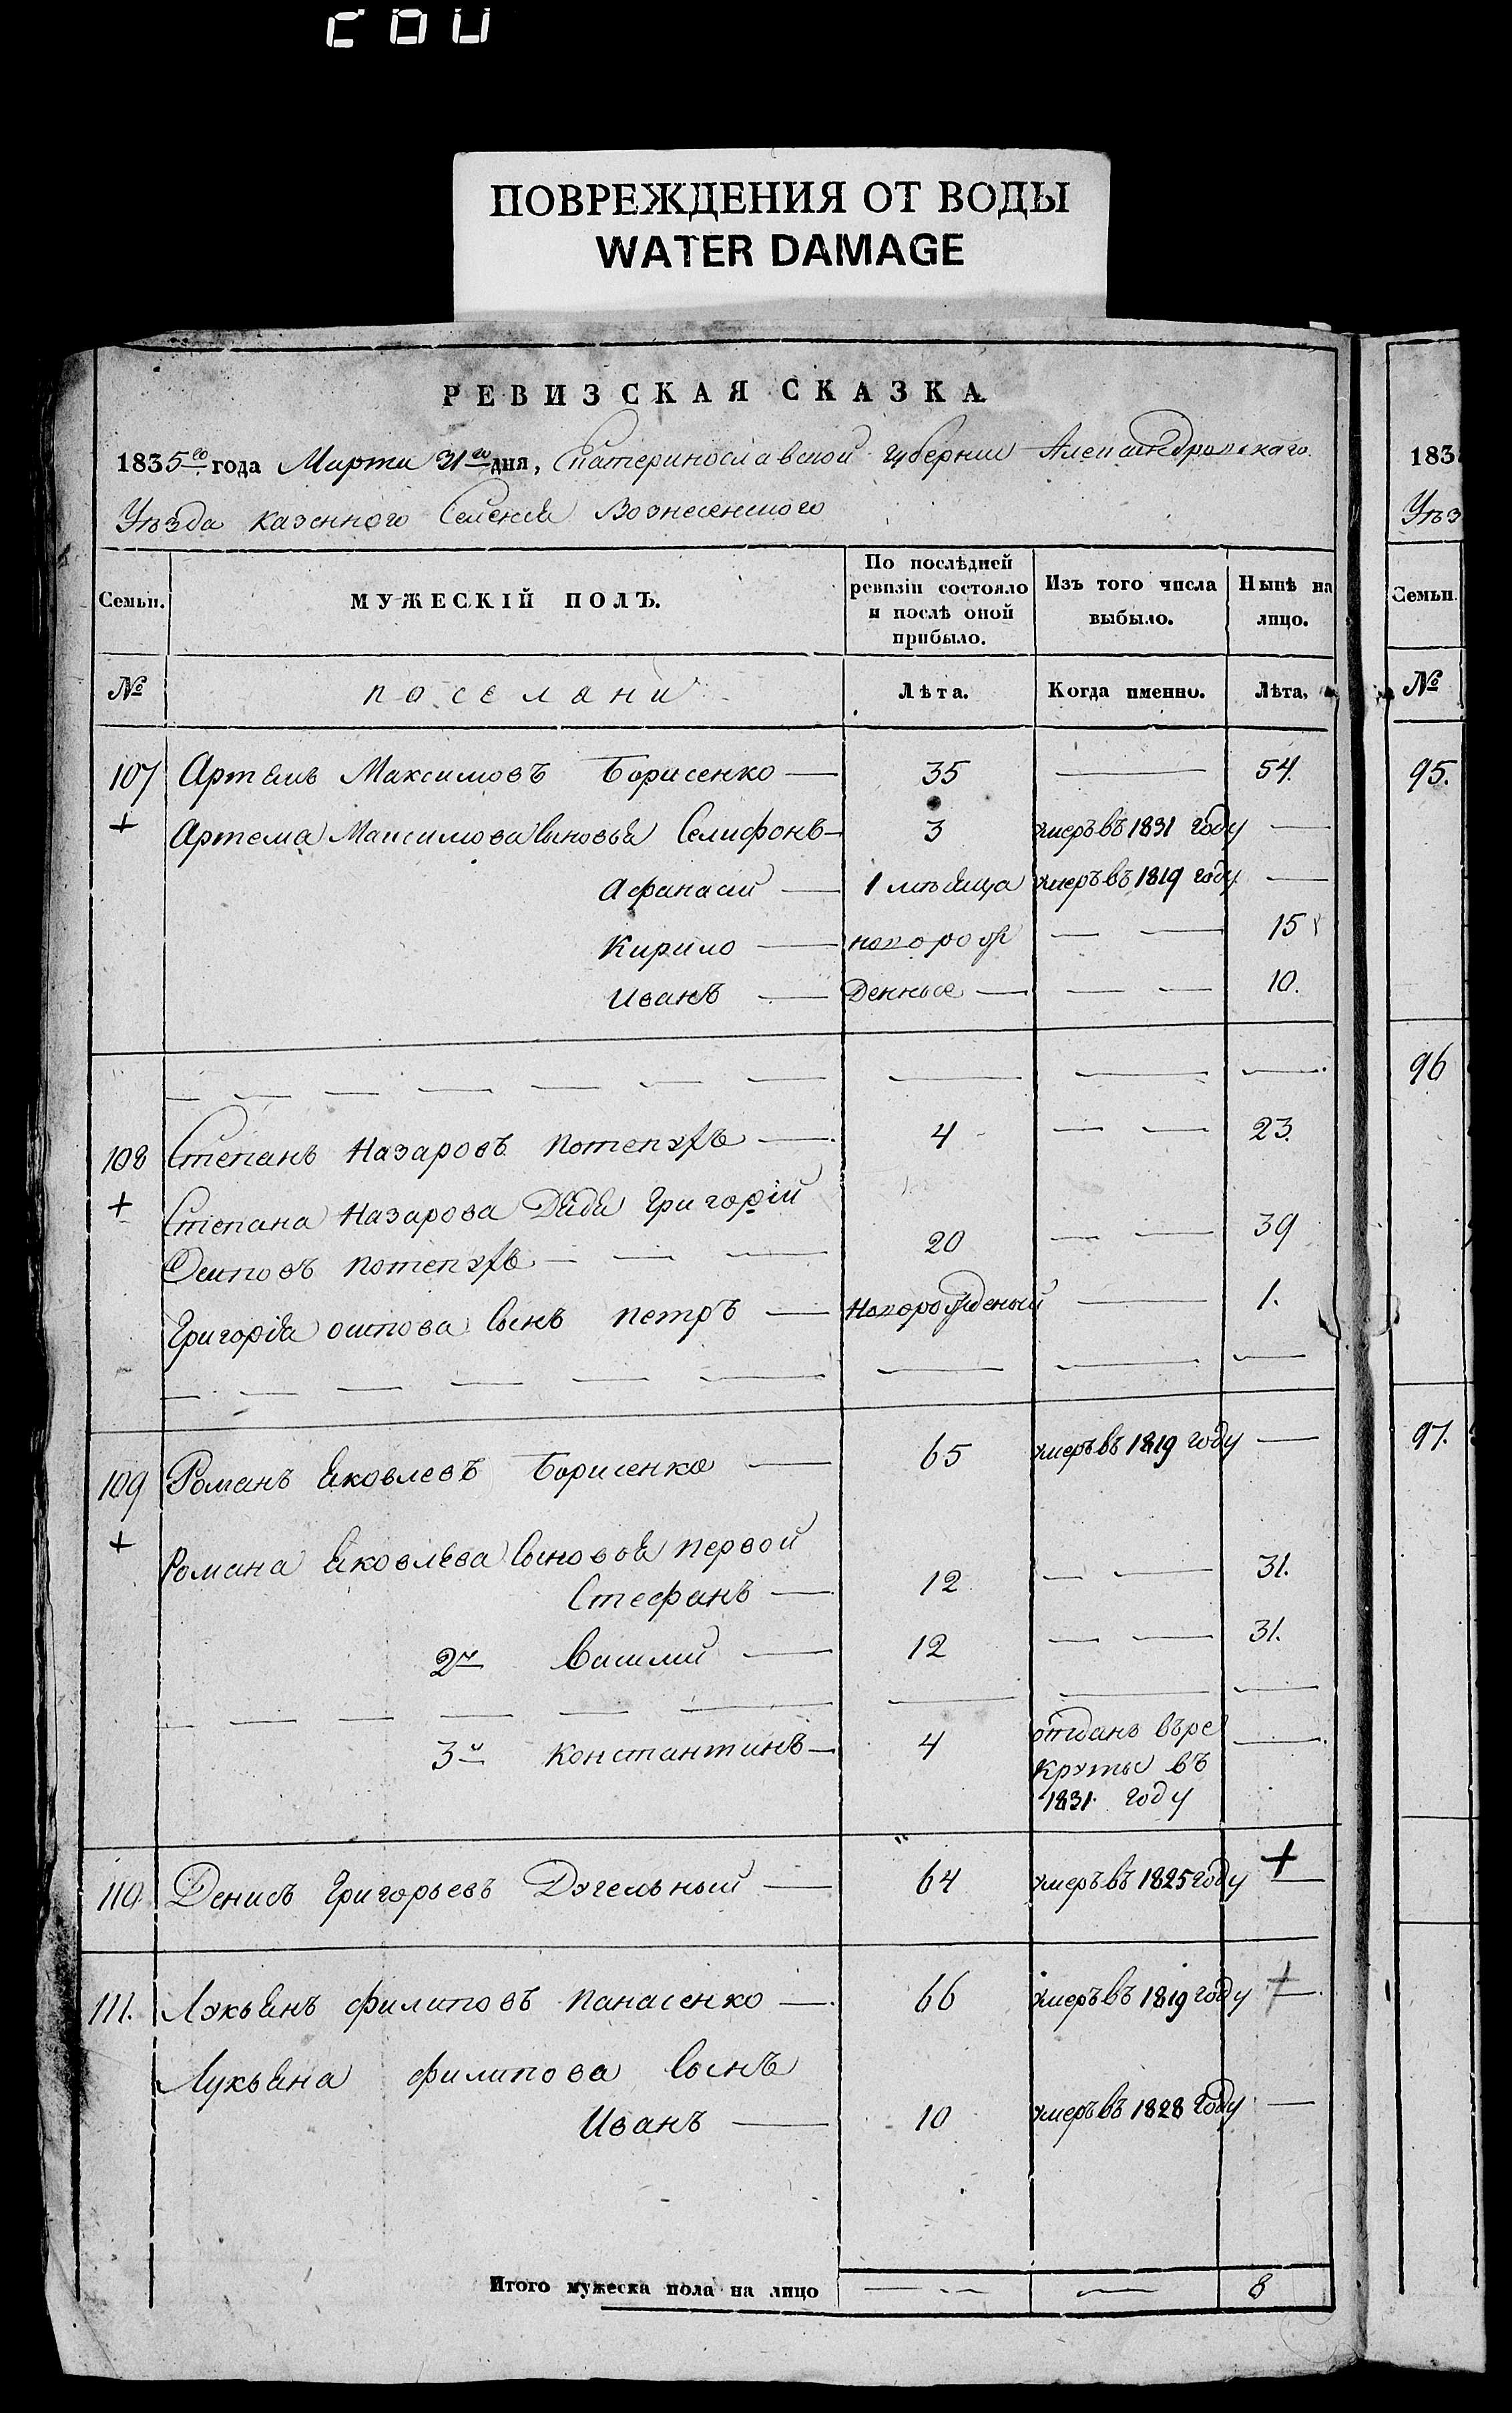 ПОВРЕЖДЕНИЯ ОТ ВОДЫ
WATER DAMAGE
РЕВИЗСКАЯ СКАЗКА.
1835го года Марта 31го дня, Екатеринославской губернии Александровскаго
Уѣзда казенного Селенія Вознесенского
Семьи.
МУЖЕСКІЙ ПОЛЪ.
По послѣдней ревизіи состояло и послѣ оной прибыло.
Изъ того числа выбыло.
Нынѣ на лицо.
№ поселяни Лѣта. Когда именно. Лѣта.
107 Артемъ Максимовъ Борисенко — 35 — 54.
+ Артема Максимова сыновья Селифонъ — 3 умеръ въ 1831 году —
Афанасий — 1 мѣсяца умеръ въ 1819 году —
Кирило — новорож — — 15
Иванъ — денные — — — 10.
108 Степанъ Назаровъ Потепухъ — 4 — — 23.
+ Степана Назарова Дядя Григорій
Осиповъ Потепухъ — — — 20 — — 39
Григорія Осипова сынъ Петръ — Новорожденый — 1.
109 Романъ Яковлевъ Борисенко — 65 умеръ въ 1819 году —
+ Романа Яковлева сыновья первой
Стефанъ — 12 — — 31.
2й Василий — 12 — — 31.
3й Константинъ — 4 отданъ върекруты въ 1831 году —
110 Денисъ Григорьевъ — 64 умеръ въ 1825 году + —
111. Лукьянъ Филиповъ Панасенко — 66 умеръ въ 1819 году + —
Лукьяна Филипова сынъ
Иванъ — 10 умеръ въ 1828 году —
Итого мужеска пола на лицо — — — 8
183
Уѣз
Семьи.
№
95.
96
97.